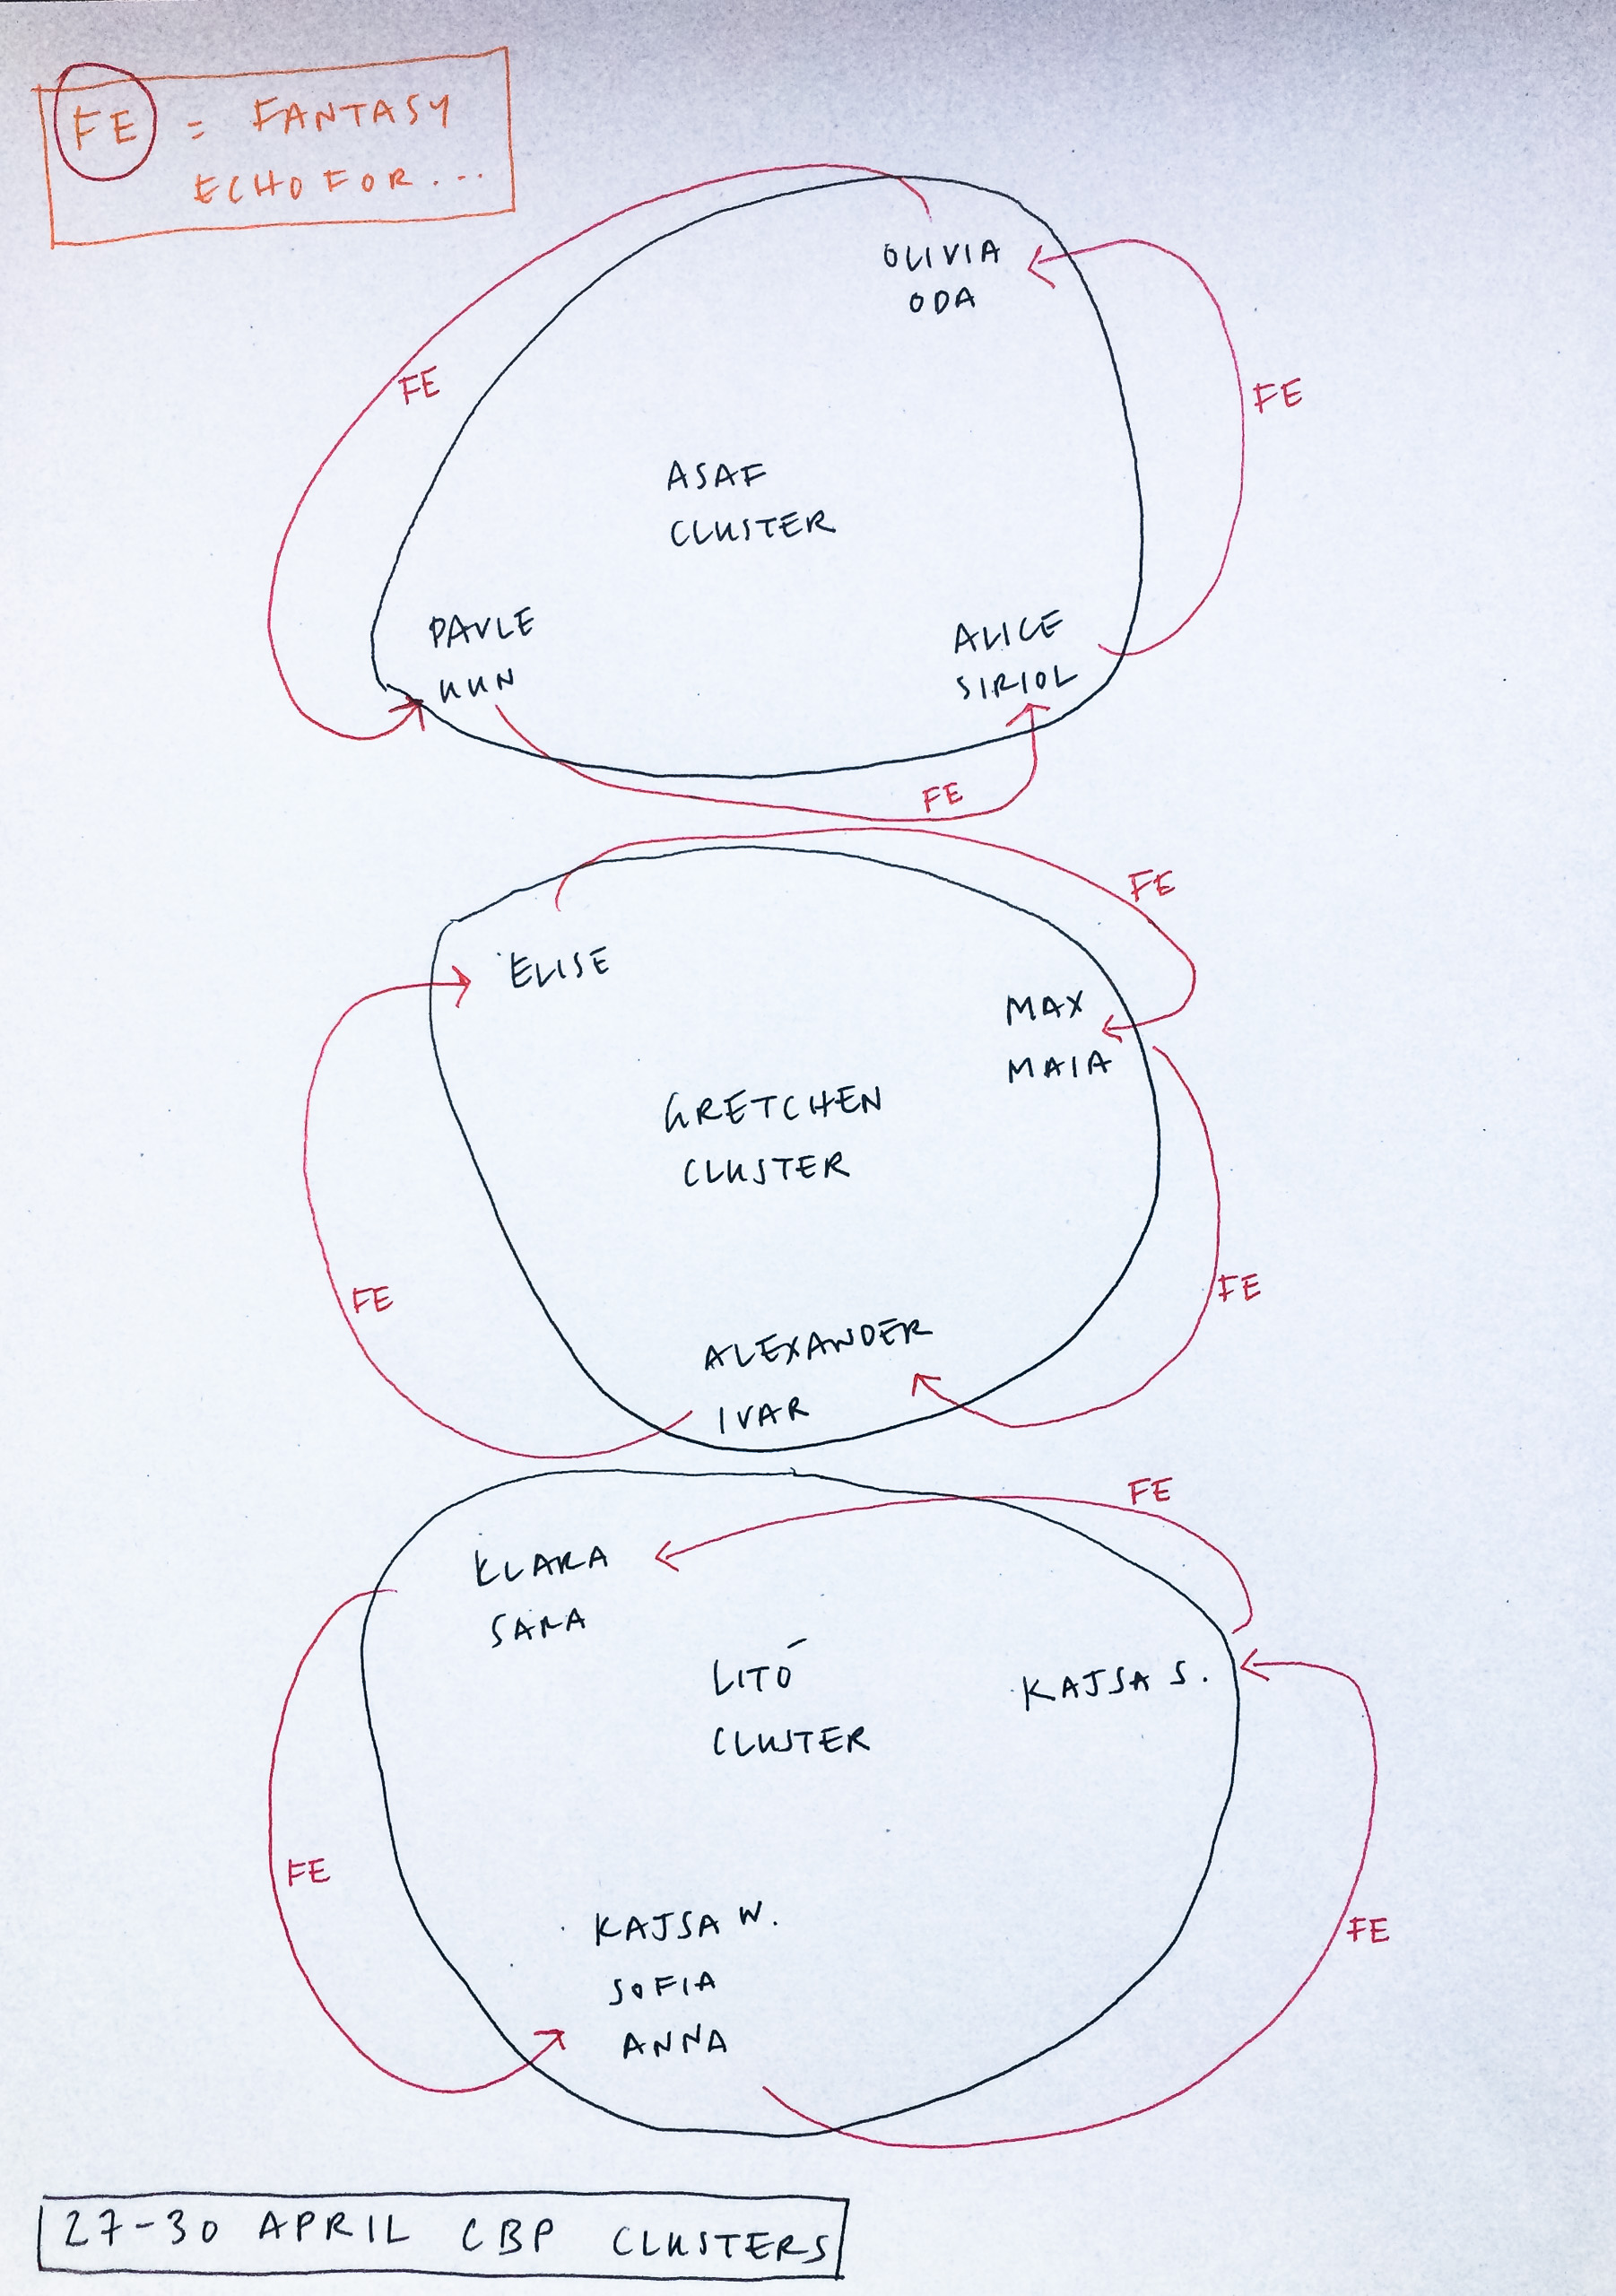 FE = FANTASY
ECHO FOR...
OLIVIA
ODA
FE
FE
ASAF
CLUSTER
PAVLE
ALICE
SIRIOL
FE
FE
ELISE
MAX
MAIA
GRETCHEN
CLUSTER
FE
FE
ALEXANDER
IVAR
FE
KLARA
SARA
LITÓ
CLUSTER
KAJSA S.
FE
KAJSA W.
SOFIA
ANNA
FE
27-30 APRIL CBP CLUSTERS